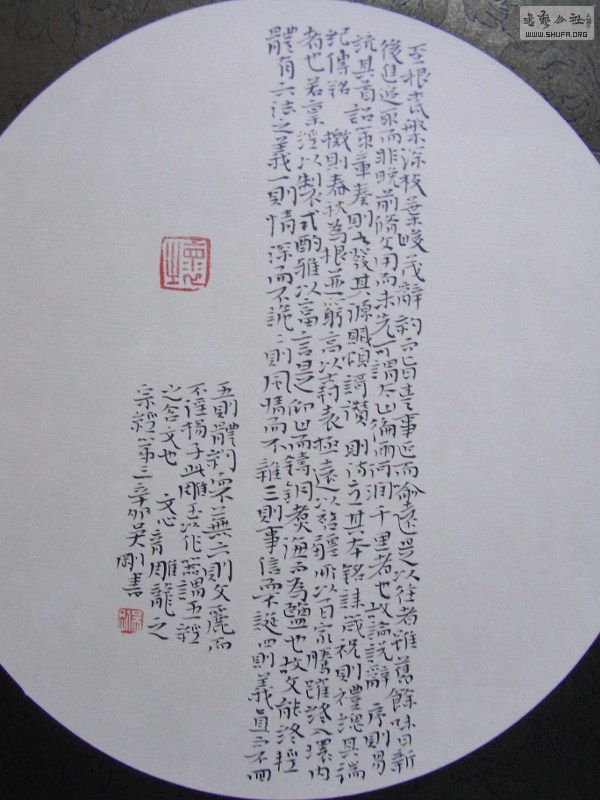 至根柢槃深枝葉峻茂辭約而旨豐事近而喻遠是以往者雖舊餘味日新
後進追取而非晚前脩久用而未先可謂太山徧雨河潤千里者也故論說辭序則易
統其首詔策章奏則書發其源賦頌謌讚則詩立其本銘誄箴祝則禮總其端
紀傳銘檄則春秋為根並窮高以樹表極遠以啟疆所以百家騰躍終入環內
者也若稟經以製式酌雅以富言是仰山而鑄銅煮海而為鹽也故文能終經
體有六法之義一則情深而不詭二則風情而不雜三則事信而不誕四則義直而不回
五則體約而不蕪六則文麗而
不淫揚子比雕玉以作器謂五經
之含文也 文心雕龍之
宗經第三辛卯吳剛書
書藝公社
WWW.SHUFA.ORG